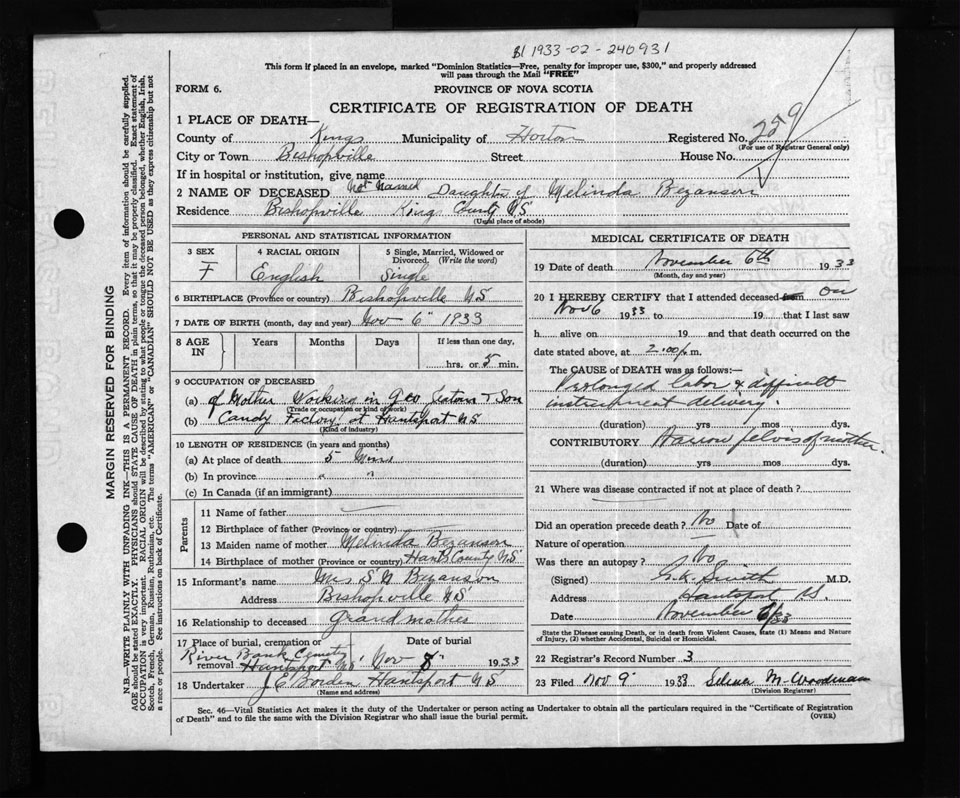 BI 1933-02-246931
This form if placed in an envelope, marked "Dominion Statistics—Free, penalty for improper use, $300," and properly addressed
will pass through the Mail "FREE"
FORM 6.
PROVINCE OF NOVA SCOTIA
CERTIFICATE OF REGISTRATION OF DEATH
1 PLACE OF DEATH—
County of Kings Municipality of Horton Registered No. 259
(For use of Registrar General only)
City or Town Bishopville Street House No.
If in hospital or institution, give name
2 NAME OF DECEASED Not named Daughter of Melinda Bezanson
Residence Bishopville Kings County NS
(Usual place of abode)
PERSONAL AND STATISTICAL INFORMATION
3 SEX 4 RACIAL ORIGIN 5 Single, Married, Widowed or
Divorced. (Write the word)
F English Single
6 BIRTHPLACE (Province or country) Bishopville NS
7 DATE OF BIRTH (month, day and year) Nov 6" 1933
8 AGE IN Years Months Days If less than one day,
hrs. or 5 min.
9 OCCUPATION OF DECEASED
(a) of Mother Working in Geo & Son
(Trade or occupation or kind of work)
(b) Candy Factory at Hantsport NS
(Kind of industry)
10 LENGTH OF RESIDENCE (in years and months)
(a) At place of death 5 Mins
(b) In province " "
(c) In Canada (if an immigrant)
Parents
11 Name of father
12 Birthplace of father (Province or country)
13 Maiden name of mother Melinda Bezanson
14 Birthplace of mother (Province or country) Hants County NS
15 Informant's name Mrs S N Bezanson
Address Bishopville NS
16 Relationship to deceased Grandmother
17 Place of burial, cremation or removal Date of burial
River Bank Cemetry
Hantsport NS Nov 8" 1933
18 Undertaker J E Borden Hantsport NS
(Name and address)
MEDICAL CERTIFICATE OF DEATH
19 Date of death November 6th 1933
(Month, day and year)
20 I HEREBY CERTIFY that I attended deceased from on
Nov 6 1933 to 19 that I last saw
h alive on 19 and that death occurred on
date stated above, at 2.00 p.m.
The CAUSE of DEATH was as follows:—
Prolonged labor & difficult
instrument delivery.
(duration) yrs mos dys.
CONTRIBUTORY Narrow pelvis of mother.
(duration) yrs mos dys.
21 Where was disease contracted if not at place of death?
Did an operation precede death? No Date of
Nature of operation
Was there an autopsy? No
(Signed) Smith M.D.
Address Hantsport N.S.
Date November 6/33
State the Disease causing Death, or in death from Violent Causes, state (1) Means and Nature
of Injury, (2) whether Accidental, Suicidal or Homicidal.
22 Registrar's Record Number 3
23 Filed Nov 9 1933 Selena M. Woodman
(Division Registrar)
Sec. 46—Vital Statistics Act makes it the duty of the Undertaker or person acting as Undertaker to obtain all the particulars required in the "Certificate of Registration
of Death" and to file the same with the Division Registrar who shall issue the burial permit.
(OVER)
MARGIN RESERVED FOR BINDING
N.B.—WRITE PLAINLY WITH UNFADING INK—THIS IS A PERMANENT RECORD. Every item of information should be carefully supplied.
AGE should be stated EXACTLY. PHYSICIANS should STATE CAUSE OF DEATH in plain terms, so that it may be properly classified. Exact statement of
OCCUPATION is very important. RACIAL ORIGIN will be described by stating to what people or tongue the deceased person belonged, whether English, Irish,
Scotch, French, German, Russian, Ruthenian, etc. The terms "AMERICAN" or "CANADIAN" SHOULD NOT BE USED as they express citizenship but not
a race or people. See instructions on back of Certificate.